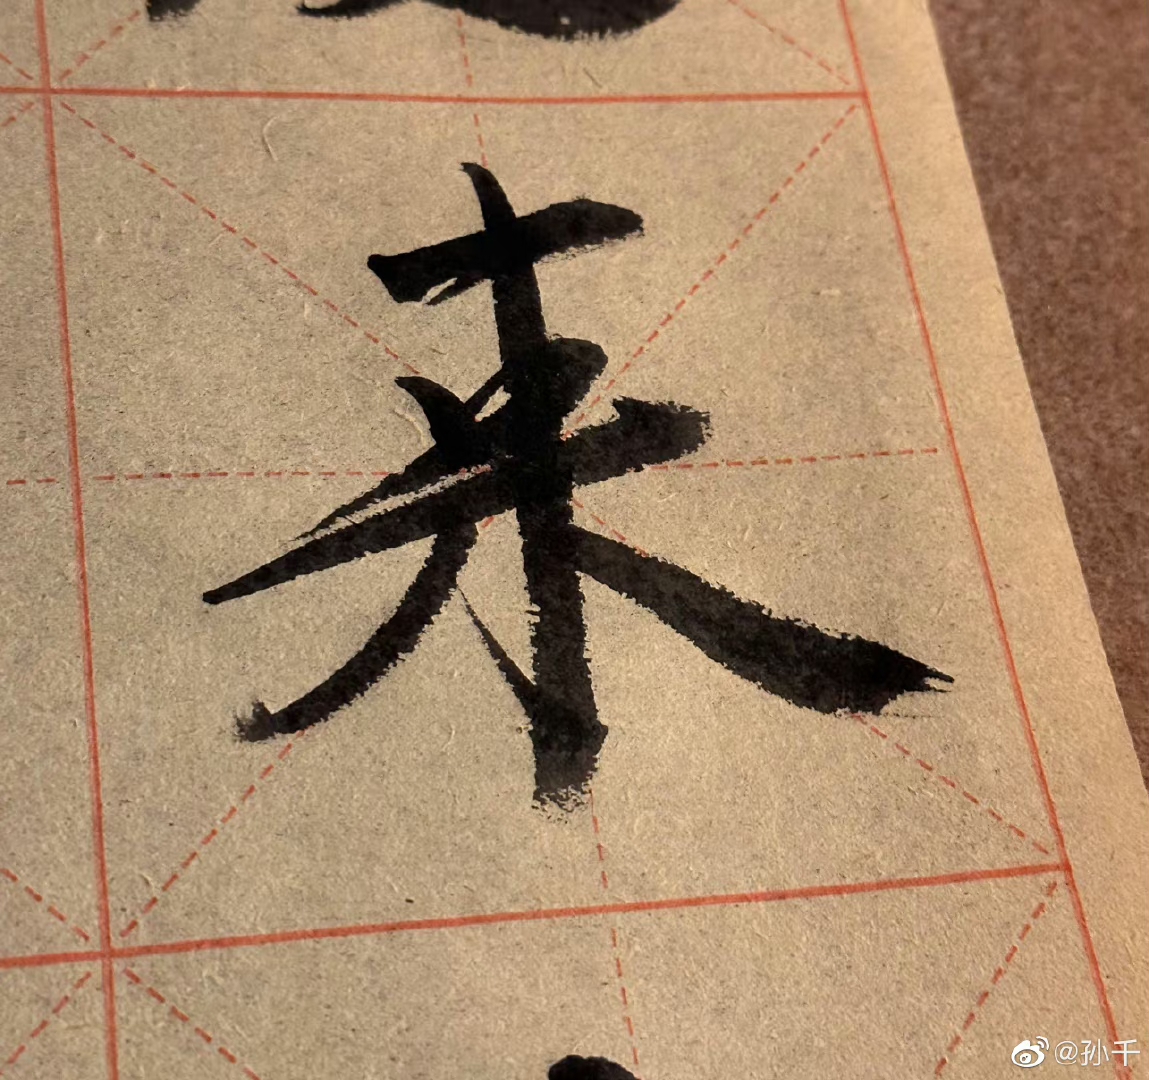 来
@孙千